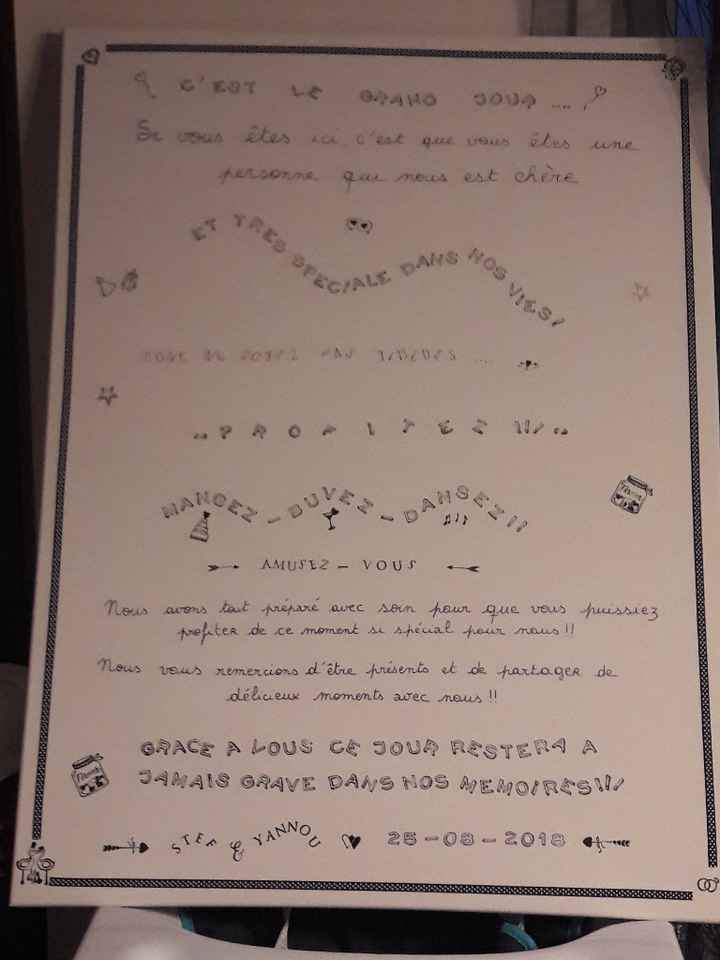 C'EST LE GRAND JOUR ....
Si vous êtes ici c'est que vous êtes une
personne qui nous est chère
ET TRES SPECIALE DANS NOS VIES!
DONC NE SOYEZ PAS TIMIDES ...
..PROFITEZ !!!..
MANGEZ - BUVEZ - DANSEZ!!
AMUSEZ - VOUS
Nous avons tout préparé avec soin pour que vous puissiez
profiter de ce moment si spécial pour nous!!
Nous vous remercions d'être présents et de partager de
délicieux moments avec nous!!
GRACE A VOUS CE JOUR RESTERA A
JAMAIS GRAVE DANS NOS MEMOIRES!!!
STEF & YANNOU 25-08-2018